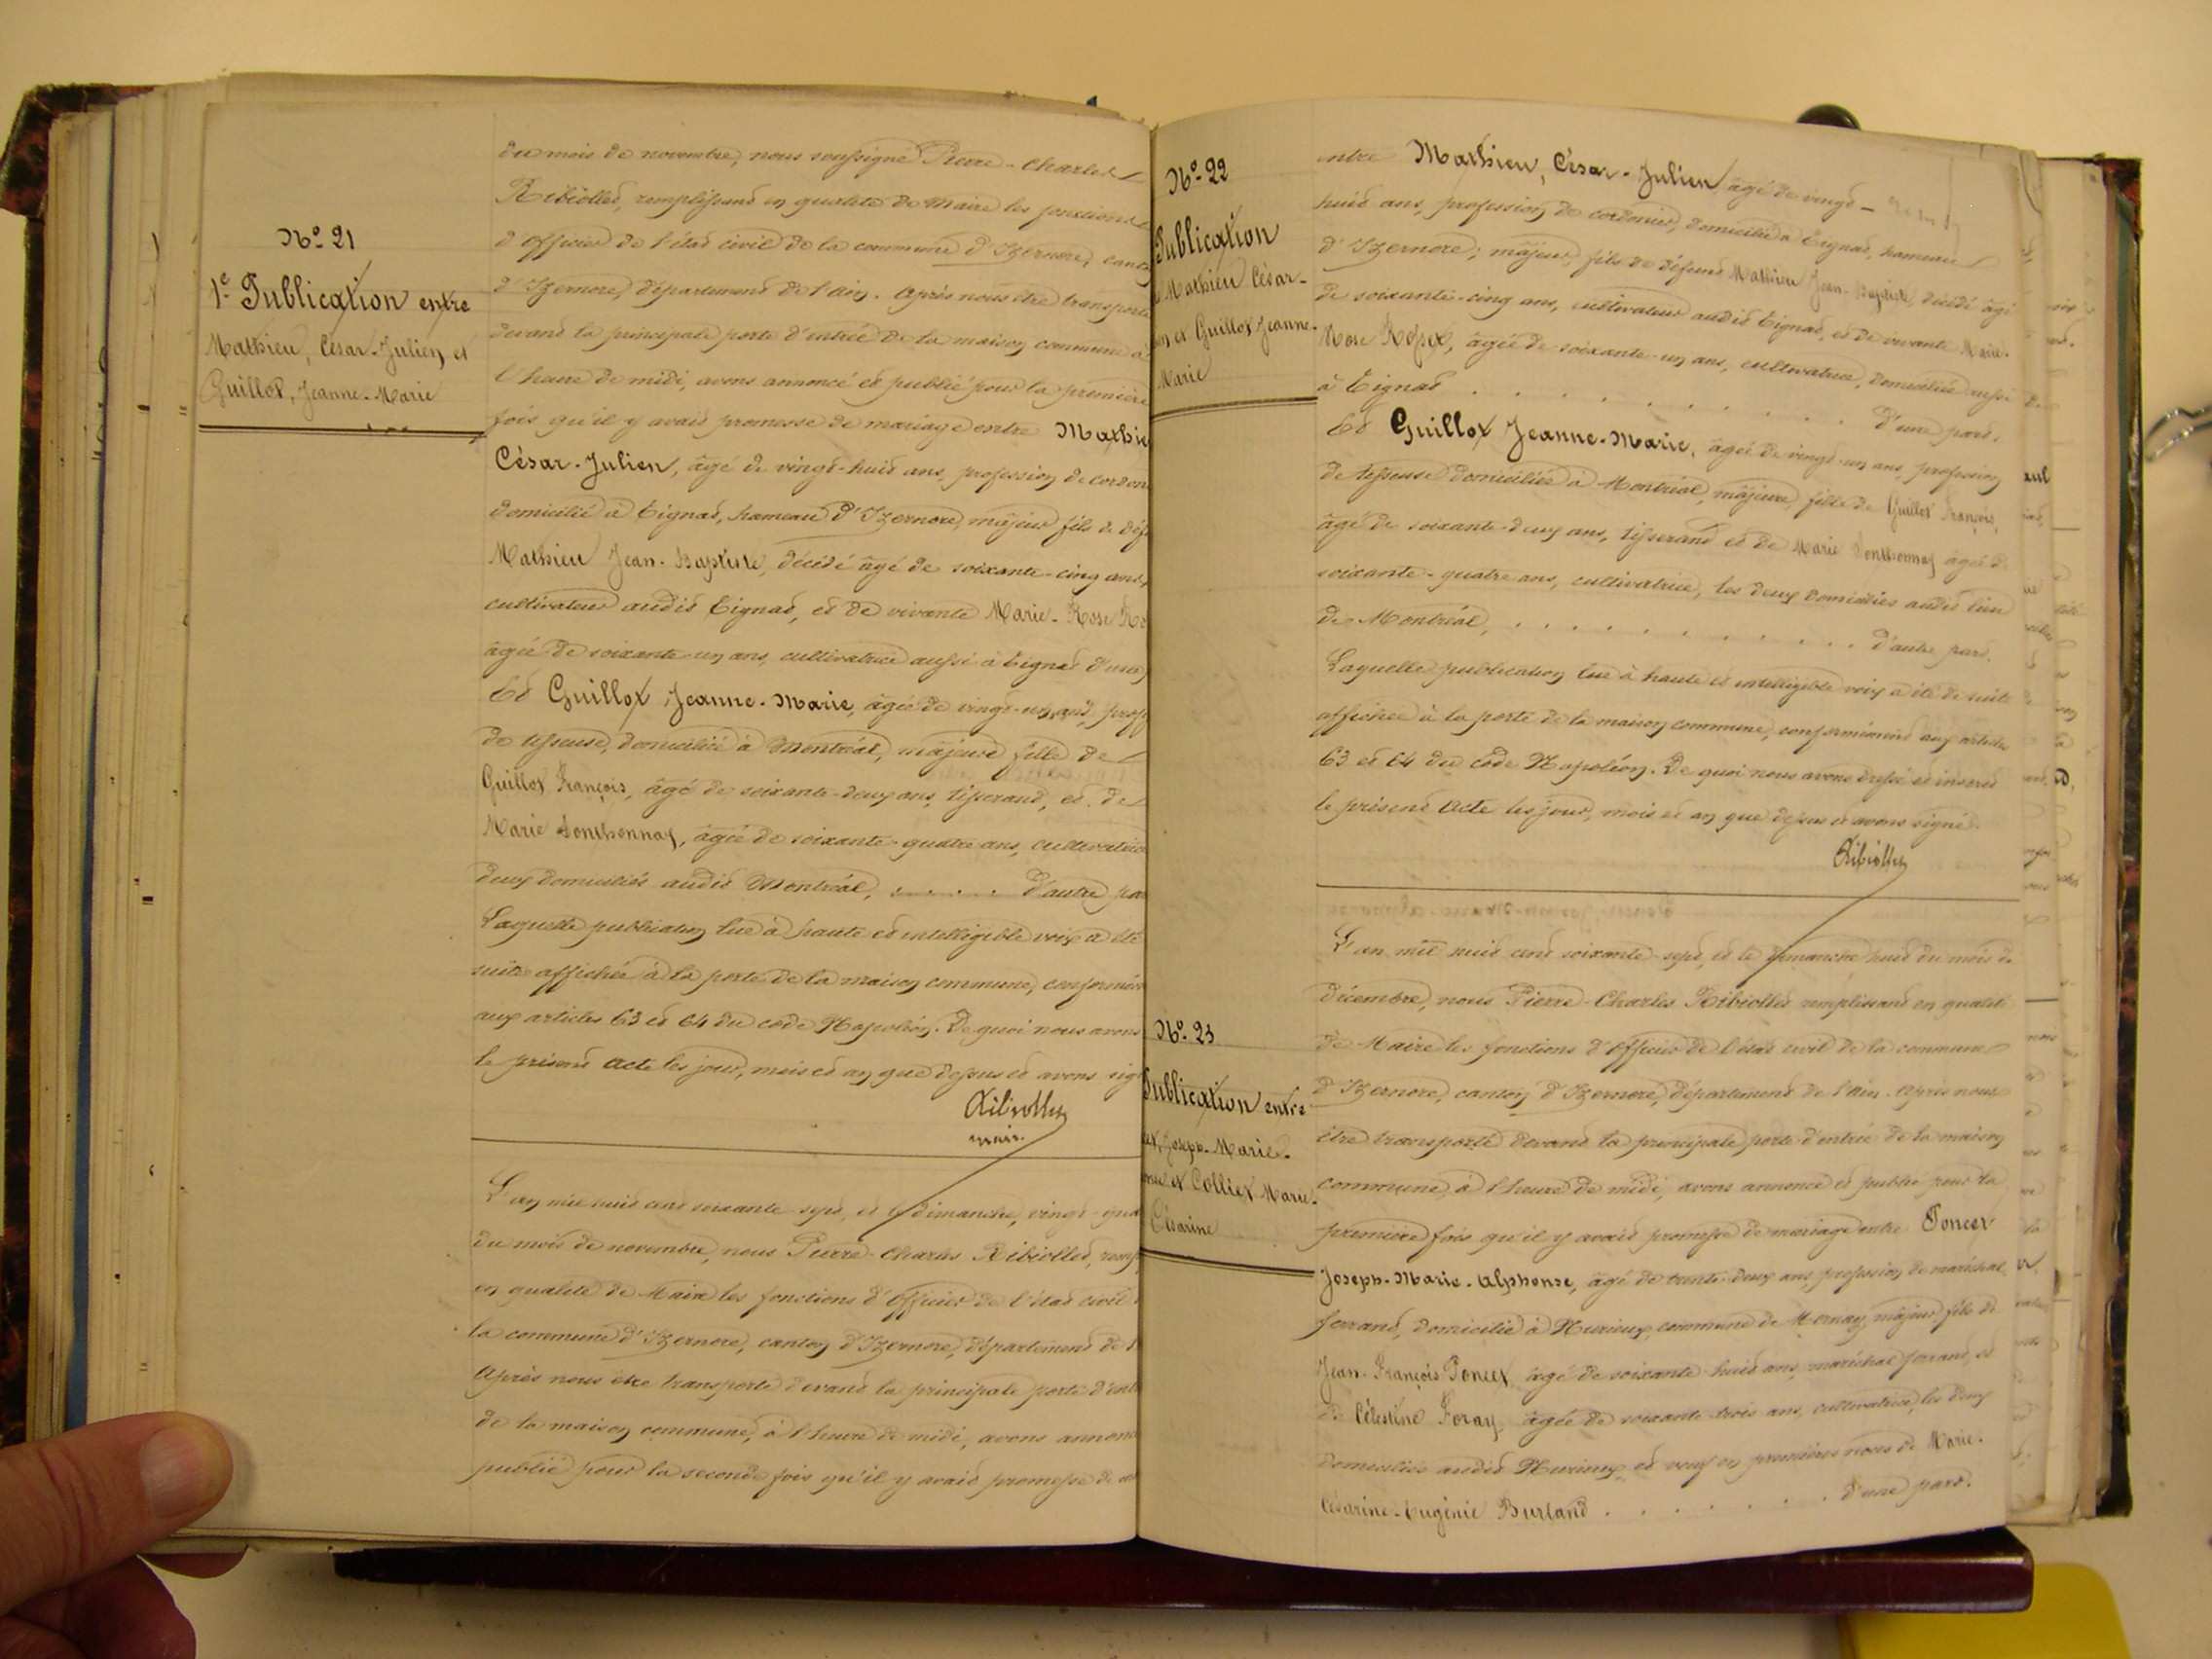 Nº 21
1e Publication entre
Mathieu, César-Julien et
Guillot, Jeanne-Marie
du mois de novembre, nous soussigné Pierre-Charles
Ribiollet, remplissant en qualité de Maire les fonctions
d'officier de l'état civil de la commune d'Izernore, canton
d'Izernore, département de l'Ain. Après nous être transporté
devant la principale porte d'entrée de la maison commune à
l'heure de midi, avons annoncé et publié pour la première
fois qu'il y avait promesse de mariage entre Mathie
César-Julien, âgé de vingt-huit ans, profession de cordon
domicilié à Tignat, hameau d'Izernore, majeur fils de déf
Mathieu Jean-Baptiste, décédé âgé de soixante-cinq ans,
cultivateur audit Tignat, et de vivante Marie-Rose Ro
âgée de soixante-un ans, cultivatrice aussi à Tignat d'une p
Et Guillot Jeanne-Marie, âgée de vingt-un ans, prof
de tisseuse, domiciliée à Montréal, majeure fille de
Guillot François, âgé de soixante-deux ans, tisserand, et de
Marie Sonthonnax, âgée de soixante-quatre ans, cultivatrice
deux domiciliés audit Montréal, . . . . . d'autre par
Laquelle publication lue à haute et intelligible voix a été
suite affichée à la porte de la maison commune, conformém
aux articles 63 et 64 du code Napoléon. De quoi nous avons
le présent acte les jour, mois et an que dessus et avons sig
Ribiollet
maire
L'an mil huit cent soixante-sept, et le dimanche, vingt-quat
du mois de novembre, nous Pierre-Charles Ribiollet, remp
en qualité de Maire les fonctions d'officier de l'état civil
la commune d'Izernore, canton d'Izernore, département de l
Après nous être transporté devant la principale porte d'entr
de la maison commune, à l'heure de midi, avons annoncé
publié pour la seconde fois qu'il y avait promesse de m
Nº 22
Publication
Mathieu César-
n et Guillot Jeanne-
Marie
entre Mathieu, César-Julien âgé de vingt-
huit ans, profession de cordonier, domicilié à Tignat, hameau
d'Izernore; majeur, fils de défunt Mathieu Jean-Baptiste, décédé âgé
de soixante-cinq ans, cultivateur audit Tignat, et de vivante Marie-
Rose, âgée de soixante-un ans, cultivatrice, domiciliée aussi
à Tignat . . . . . . . . . . d'une part.
Et Guillot Jeanne-Marie, âgée de vingt-un ans, profession
de tisseuse domiciliée à Montréal, majeure, fille de Guillot François,
âgé de soixante-deux ans, tisserand et de Marie Sonthonnax âgée de
soixante-quatre ans, cultivatrice, les deux domiciliés audit lieu
de Montréal, . . . . . . . . . . d'autre part.
Laquelle publication lue à haute et intelligible voix a été de suite
affichée à la porte de la maison commune, conformément aux articles
63 et 64 du Code Napoléon. De quoi nous avons dressé et inséré
le présent Acte les jour, mois et an que dessus et avons signé.
Ribiollet
Nº 23
Publication entre
et, Joseph-Marie-
onse et Colliet Marie-
Césarine
L'an mil huit cent soixante-sept, et le dimanche huit du mois de
décembre, nous Pierre-Charles Ribiollet remplissant en qualité
de Maire les fonctions d'officier de l'état civil de la commune
d'Izernore, canton d'Izernore, département de l'Ain. Après nous
être transporté devant la principale porte d'entrée de la maison
commune, à l'heure de midi, avons annoncé et publié pour la
première fois qu'il y avait promesse de mariage entre Poncet
Joseph-Marie-Alphonse, âgé de trente-deux ans, profession de maréchal
ferrant, domicilié à Nurieux, commune de Mornay, majeur, fils de
Jean-François Poncet, âgé de soixante-huit ans, maréchal ferrant, et
de Célestine Foray, âgée de soixante-trois ans, cultivatrice, les deux
domiciliés audit Nurieux, et veuf en premières noces de Marie-
Césarine-Eugénie Burland . . . . . . . d'une part.